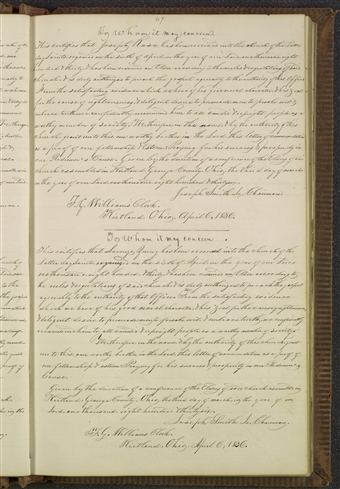 To Whom it may concern.
This certifies that Joseph Rose has been received into the church of the Latter
day Saints organized on the sixth of April in the year of our Lord one thousand eight
hundred & thirty & has been ordained an Elder according to the rules & regulations of said
church & is duly authorized to preach the gospel agreeably to the authority of that Office
From the satisfactory evidence which we have of his good moral character & his zeal
for the cause of righteousness & diligent desire to persuade men to forsake evil &
embrace truth we confidently recommend him to all candid & upright people as a
worthy member of society. We therefore in the name & by the authority of this
church grant unto this our worthy brother in the Lord this letter of commendation
as a proof of our fellowship & esteem Praying for his success & prosperity in
our Redeemer's Cause. Given by the direction of a conference of the Elders of said
church assembled in Kirtland Geauga County, Ohio, the third day of March
in the year of our Lord one thousand eight hundred & thirty six.
Joseph Smith Jr. Chairman
F. G. Williams Clerk.
Kirtland, Ohio, April 6, 1836.
To Whom it may concern.
This certifies that Young has been received into the church of the
Latter day Saints organized on the sixth of April in the year of our Lord
one thousand eight hundred & thirty & has been ordained an Elder according to
the rules & regulations of said church & is duly authorized to preach the gospel
agreeably to the authority of that Office. From the satisfactory evidence
which we have of his good moral character & his zeal for the cause of righteousness
& diligent desire to persuade men to forsake evil & embrace truth we confidently
recommend him to all candid & upright people as a worthy member of society.
We therefore in the name & by the authority of this church grant
unto this our worthy brother in the Lord this letter of commendation as a proof of
our fellowship & esteem Praying for his success & prosperity in our Redeemer's
Cause.
Given by the direction of a conference of the Elders of said church assembled in
Kirtland, Geauga County, Ohio, the third day of March in the year of our
Lord one thousand eight hundred & thirty six.
Joseph Smith Jr. Chairman
F. G. Williams Clerk.
Kirtland, Ohio, April 6, 1836.